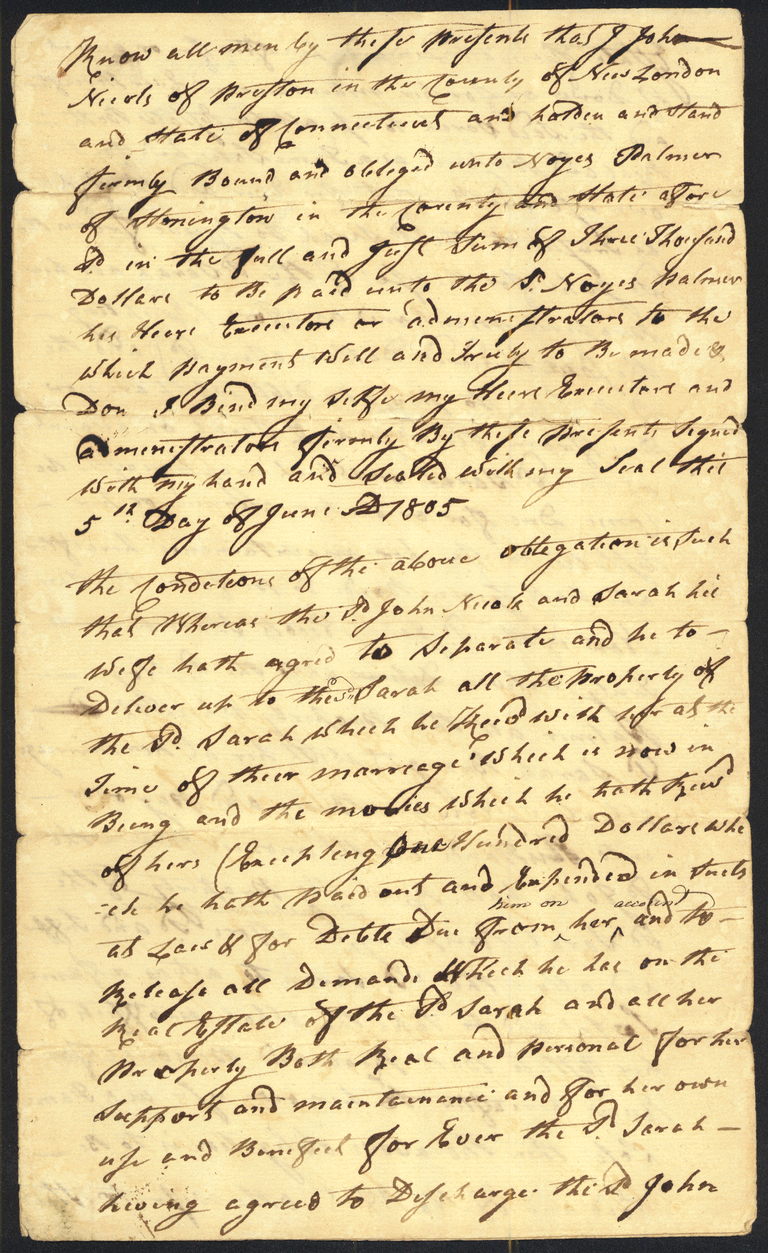 Know all men by these presents that I John
Nicols of Preston in the County of New London
and State of Connecticut and holden and stand
firmly Bound and obleged unto Noyes Palmer
of Stonington in the County and State afore
sd in the full and Just Sum of Three Thousand
Dollars to Be paid unto the Sd Noyes Palmer
his Heirs Executors or administrators to the
which payment Well and Truly to Be made &
Don I Bind my Selfe my Heirs Executors and
administrators firmly By these presents Signed
with my hand and Sealed with my Seal this
5th Day of June AD 1805
the Conditions of the above obligation is Such
that Whereas the Sd John Nicols and Sarah his
wife hath agred to Separate and he to –
Deliver up to the sd Sarah all the property of
the Sd Sarah which he Recd with her at the
time of their marreage which is now in
Being and the monies which he hath Recd
of hers (Excepting one Hundred Dollars whi
=ch he hath paid out and Expended in Suits
at Law & for Debts Due from him on her account and to –
Release all Demands Which he has on the
Real Estate of the Sd Sarah and all her
Property Both Real and personal for her
Support and maintainance and for her own
use and Benefeet for Ever the Sd Sarah –
having agreed to Discharge the Sd John